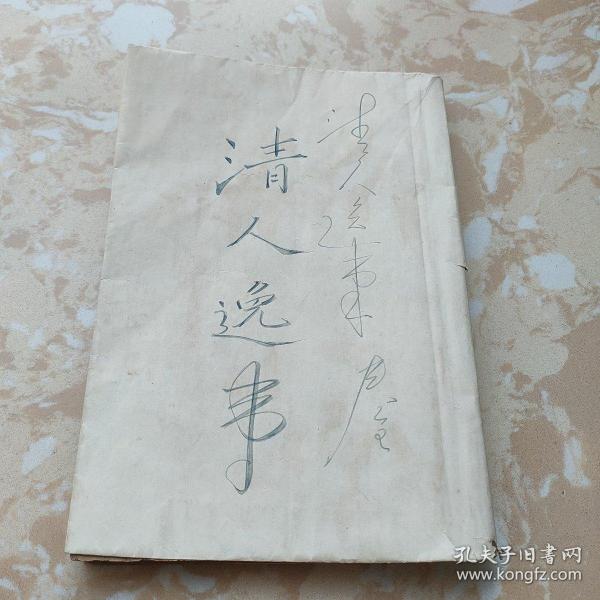 清人逸事
清人逸事
孔夫子旧書网
www.kongfz.com